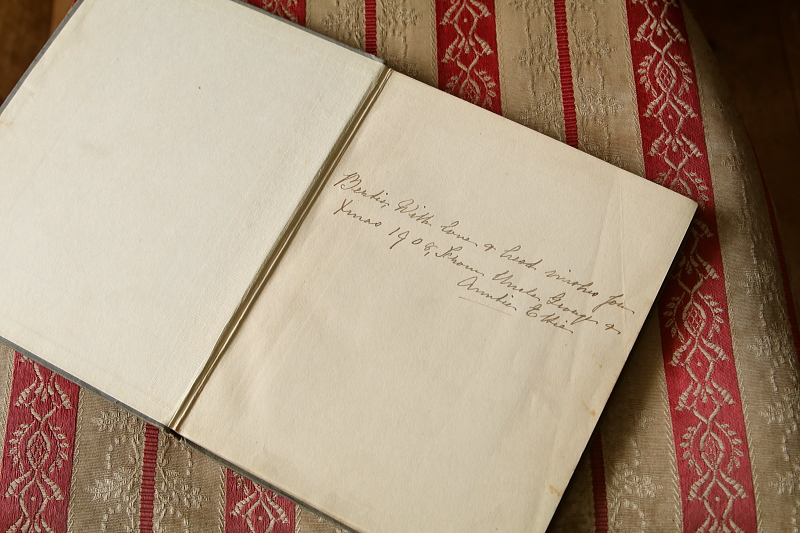 Bertie, With love & best wishes for
Xmas 1908, From Uncle George &
Auntie Ethie.